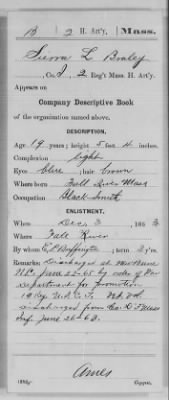 B 2 H. Art'y. Mass.
L Braley
, Co. , 2 Reg't Mass. H. Art'y.
Appears on
Company Descriptive Book
of the organization named above.
DESCRIPTION.
Age 19 years; height 5 feet 4 inches.
Complexion light
Eyes Blue; hair brown
Where born Fall River Mass
Occupation Black Smith
ENLISTMENT.
When Dec 3, 1863
Where Fall River
By Buffington; term 3 y'rs.
Remarks: Discharged at New Berne
N.C. June by order of War
Department for promotion
discharged from Co. Mass
Inf. June 26-63.
Ames
Copyist.